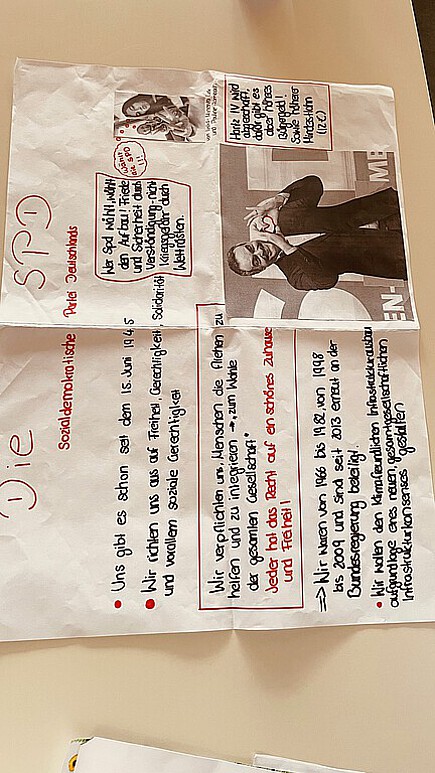 Die SPD
Sozialdemokratische Partei Deutschlands
• Uns gibt es schon seit dem 15. Juni 1945
• Wir richten uns aus auf Freiheit, Gerechtigkeit, Solidarität
und vorallem soziale Gerechtigkeit
Wer Spd wählt, wählt
den Aufbau! Friede
und Sicherheit durch
Verständigung - nicht
Kriegsgefahr durch
Wettrüsten.
Wählt
die SPD
!!
Wir verpflichten uns, Menschen die fliehen zu
helfen und zu integrieren →, zum Wohle
der gesamten Gesellschaft"
Jeder hat das Recht auf ein schönes Zuhause
und Freiheit!
Hartz IV wird
abgeschafft,
dafür gibt es
aber höheres
Bürgergeld!
Sowie höherer
Mindestlohn
(12€)
=> Wir waren von 1966 bis 1982, von 1998
bis 2009 und sind seit 2013 erneut an der
Bundesregierung beteiligt.
• Wir wollen den klimafreundlichen Infrastrukturausbau
aufgrundlage eines neuen, gesamtgesellschaftlichen
Infrastrukturkonsenses gestalten
EN-
ME